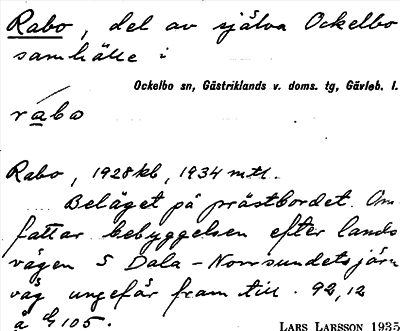 Rabo, del av själva Ockelbo
samhälle i
Ockelbo sn, Gästriklands v. doms. tg, Gävleb. l.
rabo
Rabo, 1928 kb, 1934 mtl.
Beläget på prästbordet. Om-
fattar bebyggelsen efter lands
vägen S Dala-Norrsundets järn
väg ungefär fram till 92,12
å G 105.
LARS LARSSON 1935